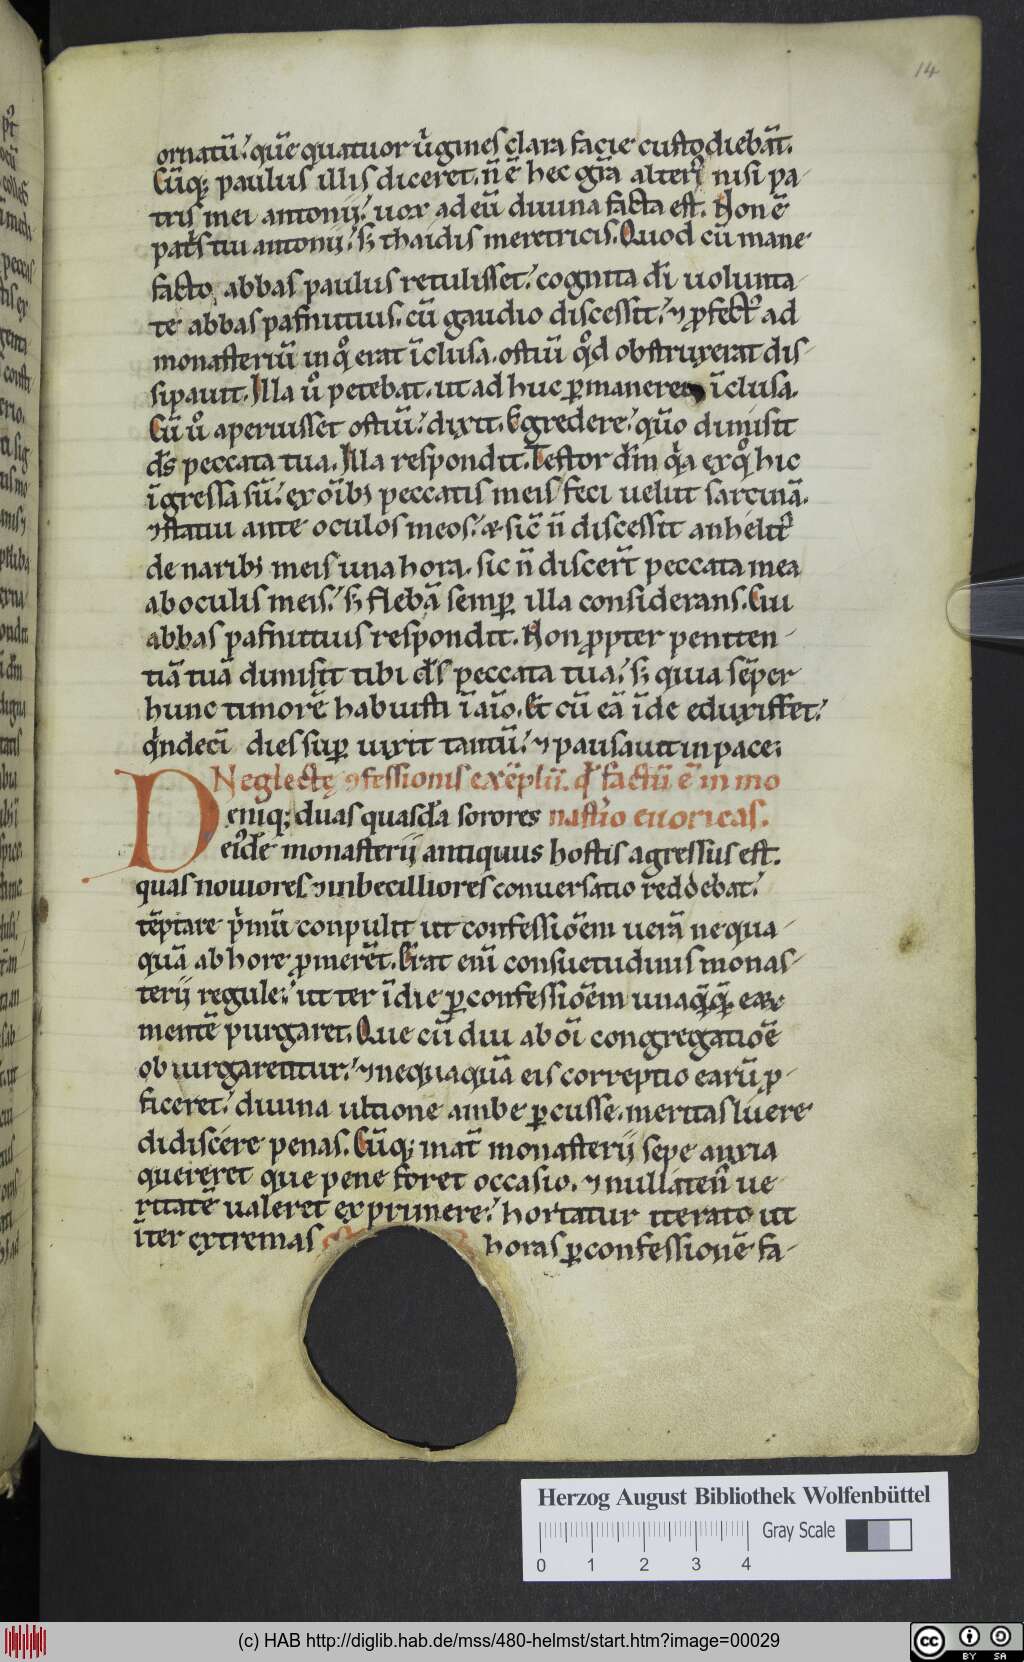 14
ornatū. quē quatuor v̓gines clara facie custodiebāt.
Cūq; paulus illis diceret. n̄ ē hec gr̄a alteri᾿ nisi pa-
tris mei antonij. uox ad eū diuina facta est. Non ē
patⁱs tui antonij. sꝫ thaidis meretricis. Quod cū mane
facto abbas paulus retulisset. cognita dī uolunta-
te abbas pafnutius. cū gaudio discessit. ⁊ ꝓfectꝰ ad
monasteriū in qͦ erat īclusa. ostiū qͦd obstruxerat dis-
sipauit. Illa uͦ petebat. ut ad huc ꝑmaneret īclusa.
Cū uͦ aperuisset ostiū. dixit. Egredere. qūo dimisit
dꝰs peccata tua. Illa respondit. Testor dm̄ qͥa ex qͦ hic
īgressa sū. ex oīb; peccatis meis feci uelut sarcinā.
⁊ statui ante oculos meos. & sic̄ n̄ discessit anhelitꝰ
de narib; meis una hora. sic n̄ discer̄t peccata mea
ab oculis meis. sꝫ flebā semꝑ illa considerans. Cui
abbas pafnutius respondit. Non ꝓpter peniten-
tiā tuā dimisit tibi dꝰs peccata tua. sꝫ quia sēper
hunc timorē habuisti ī aīo. Et cū eā īde eduxisset.
qͥndecī dies suꝑ uixit tantū. ⁊ pausauit in pace.
Neglectę ꝯfessionis exēplū. qd̄ factū ē in mo
Deniq; duas quasdā sorores nastīo euoricas.
eiꝰdē monasterij antiquus hostis agressus est.
quas nouiores ⁊ inbecilliores conuersatio reddebat.
tēptare pⁱmū conpulit ut confessiōem uerā nequa-
quā ab hore ꝓmerēt. Erat enī consuetudinis monas-
terij regule. ut ter ī die ꝑ confessiōem unaqͣqͣꝫ eaꝝ
mentē purgaret. Que cū diu ab oī congregatiōe
obiurgarentur. ⁊ nequaquā eis correptio earū ꝓ-
ficeret. diuina ultione ambe ꝑcusse. meritas luere
didiscere penas. Cūq; mat̄ monasterij sepe anxia
quereret que pene foret occasio. ⁊ nullaten̄ ue
ritatē ualeret exprimere. hortatur iterato ut
īter extremas horas ꝑ confessionē fa-
Herzog August Bibliothek Wolfenbüttel
Gray Scale
0 1 2 3 4
(c) HAB http://diglib.hab.de/mss/480-helmst/start.htm?image=00029
cc BY SA